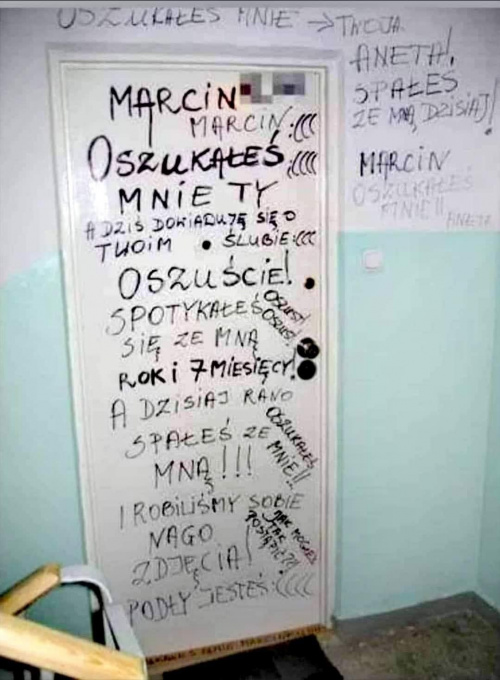 OSZUKAŁEŚ MNIE → TWOJA
ANETA!
SPAŁEŚ
ZE MNĄ DZISIAJ!
MARCIN
OSZUKAŁEŚ
MNIE!!
ANETA
MARCIN
MARCIN :(((
OSZUKAŁEŚ :((((
MNIE TY
A DZIŚ DOWIADUJĘ SIĘ O
TWOIM ŚLUBIE :(((
OSZUŚCIE!
SPOTYKAŁEŚ
SIĘ ZE MNĄ
OSZUST!
OSZUST!
ROK i 7 MIESIĘCY!
A DZISIAJ RANO
SPAŁEŚ ZE
MNĄ!!!
OSZUKAŁEŚ
MNIE!!
I ROBILIŚMY SOBIE
NAGO
ZDJĘCIA!
JAK MOGŁEŚ
TAK
POSTĄPIĆ?!!
PODŁY JESTEŚ :((((